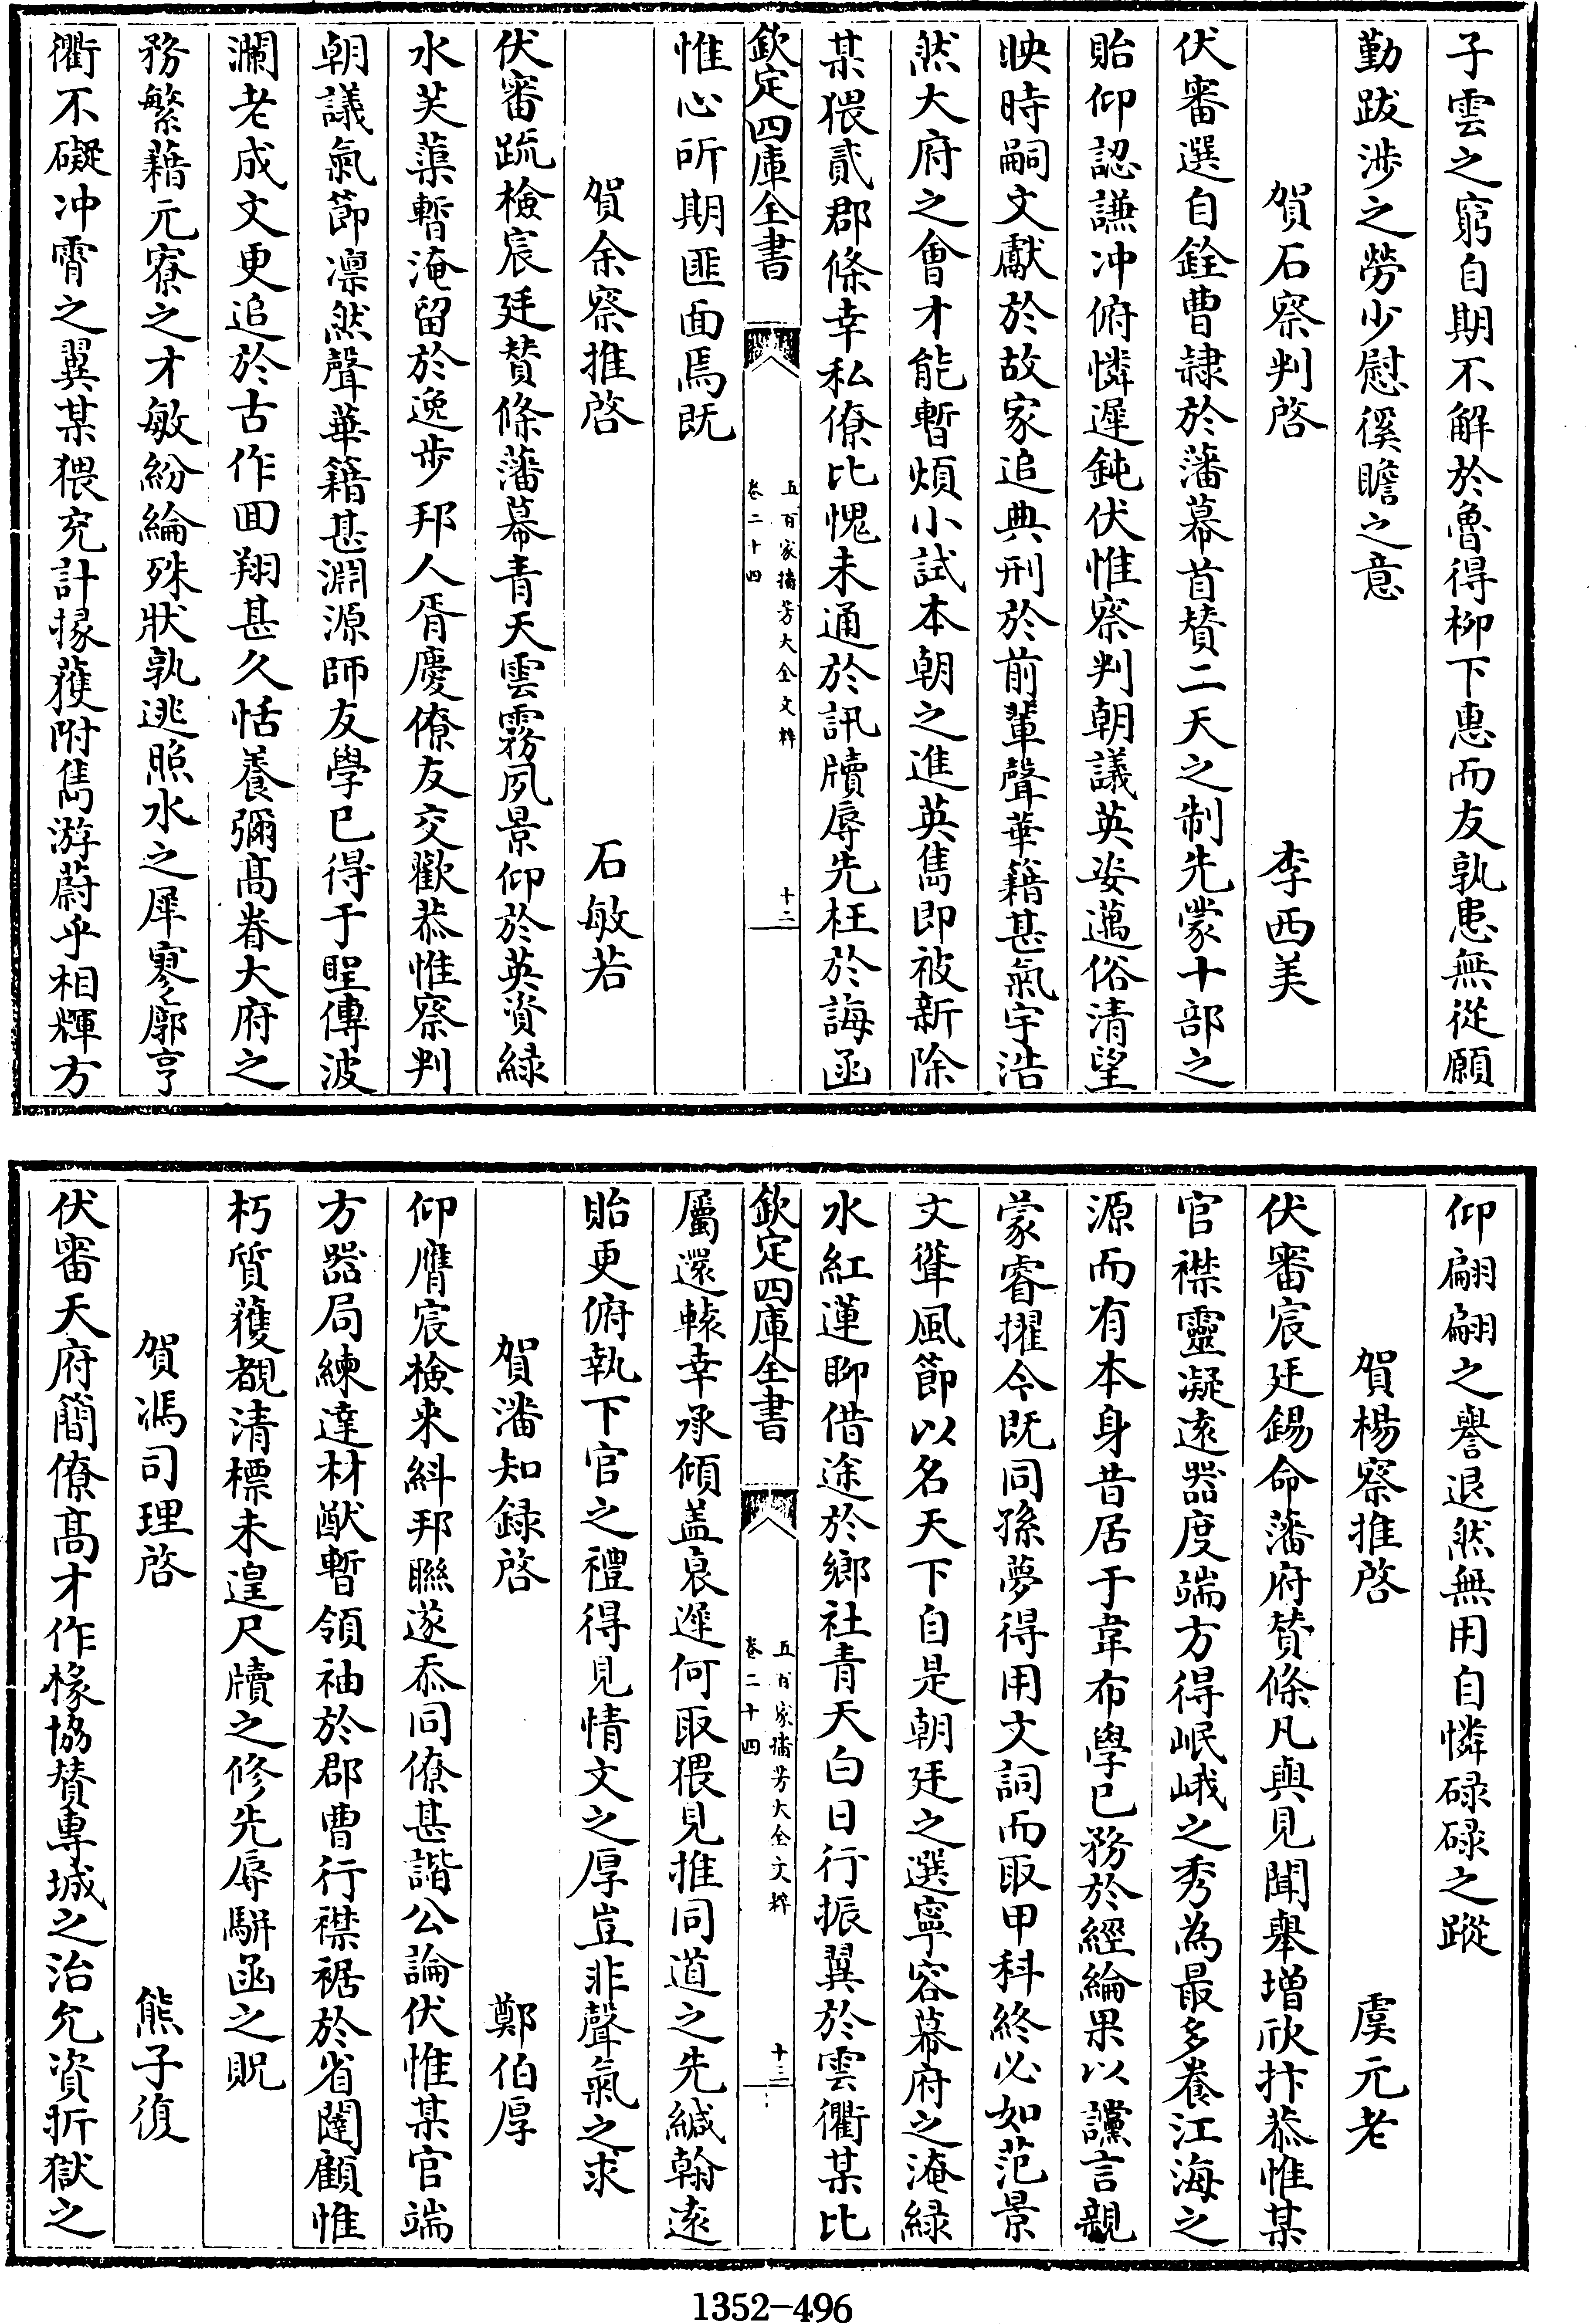 子雲之窮自期不解於魯得栁下惠而友孰患無從願
勤跋涉之勞少慰徯瞻之意
賀石察判啓　李西美
伏審選自銓曹隷於藩幕首賛二天之制先蒙十部之
貽仰認謙冲俯憐遲鈍伏惟察判朝議英姿邁俗清望
映時嗣文獻於故家追典刑於前輩聲華籍甚氣宇浩
然大府之會才能暫煩小試本朝之進英雋即被新除
某猥貳郡條幸私僚比愧未通於訊牘辱先枉於誨函
欽定四庫全書　五百家播芳大全文粹　卷二十四　十二
惟心所期匪面焉既
賀余察推啓　石敏若
伏審疏檢宸廷賛條藩幕青天雲霧夙景仰於英資緑
水芙蕖暫淹留於逸步邦人胥慶僚友交歡恭惟察判
朝議氣節凛然聲華籍甚淵源師友學已得于聖傳波
瀾老成文更追於古作回翔甚久恬養彌髙眷大府之
務繁藉元寮之才敏紛綸殊狀孰逃照水之犀寥廓亨
衢不礙冲霄之翼某猥充計掾獲附雋游蔚乎相輝方
仰翩翩之譽退然無用自憐碌碌之蹤
賀楊察推啓　虞元老
伏審宸廷錫命藩府賛條凡與見聞舉增欣抃恭惟某
官襟靈凝逺器度端方得岷峨之秀為最多養江海之
源而有本身昔居于韋布學已務於經綸果以讜言親
蒙睿擢今既同孫夢得用文詞而取甲科終必如范景
文聳風節以名天下自是朝廷之選寧容幕府之淹緑
水紅蓮聊借途於鄉社青天白日行振翼於雲衢某比
欽定四庫全書　五百家播芳大全文粹　卷二十四　十三
屬還轅幸承傾盖哀遲何取猥見推同道之先緘翰逺
貽更俯執下官之禮得見情文之厚豈非聲氣之求
賀潘知録啓　鄭伯厚
仰膺宸檢来糾邦聮遂忝同僚甚諧公論伏惟某官端
方器局練達材猷暫領袖於郡曹行襟裾於省闥顧惟
朽質獲覩清標未遑尺牘之修先辱駢函之貺
賀馮司理啓　熊子復
伏審天府簡僚髙才作掾協賛專城之治允資折獄之
1352-496